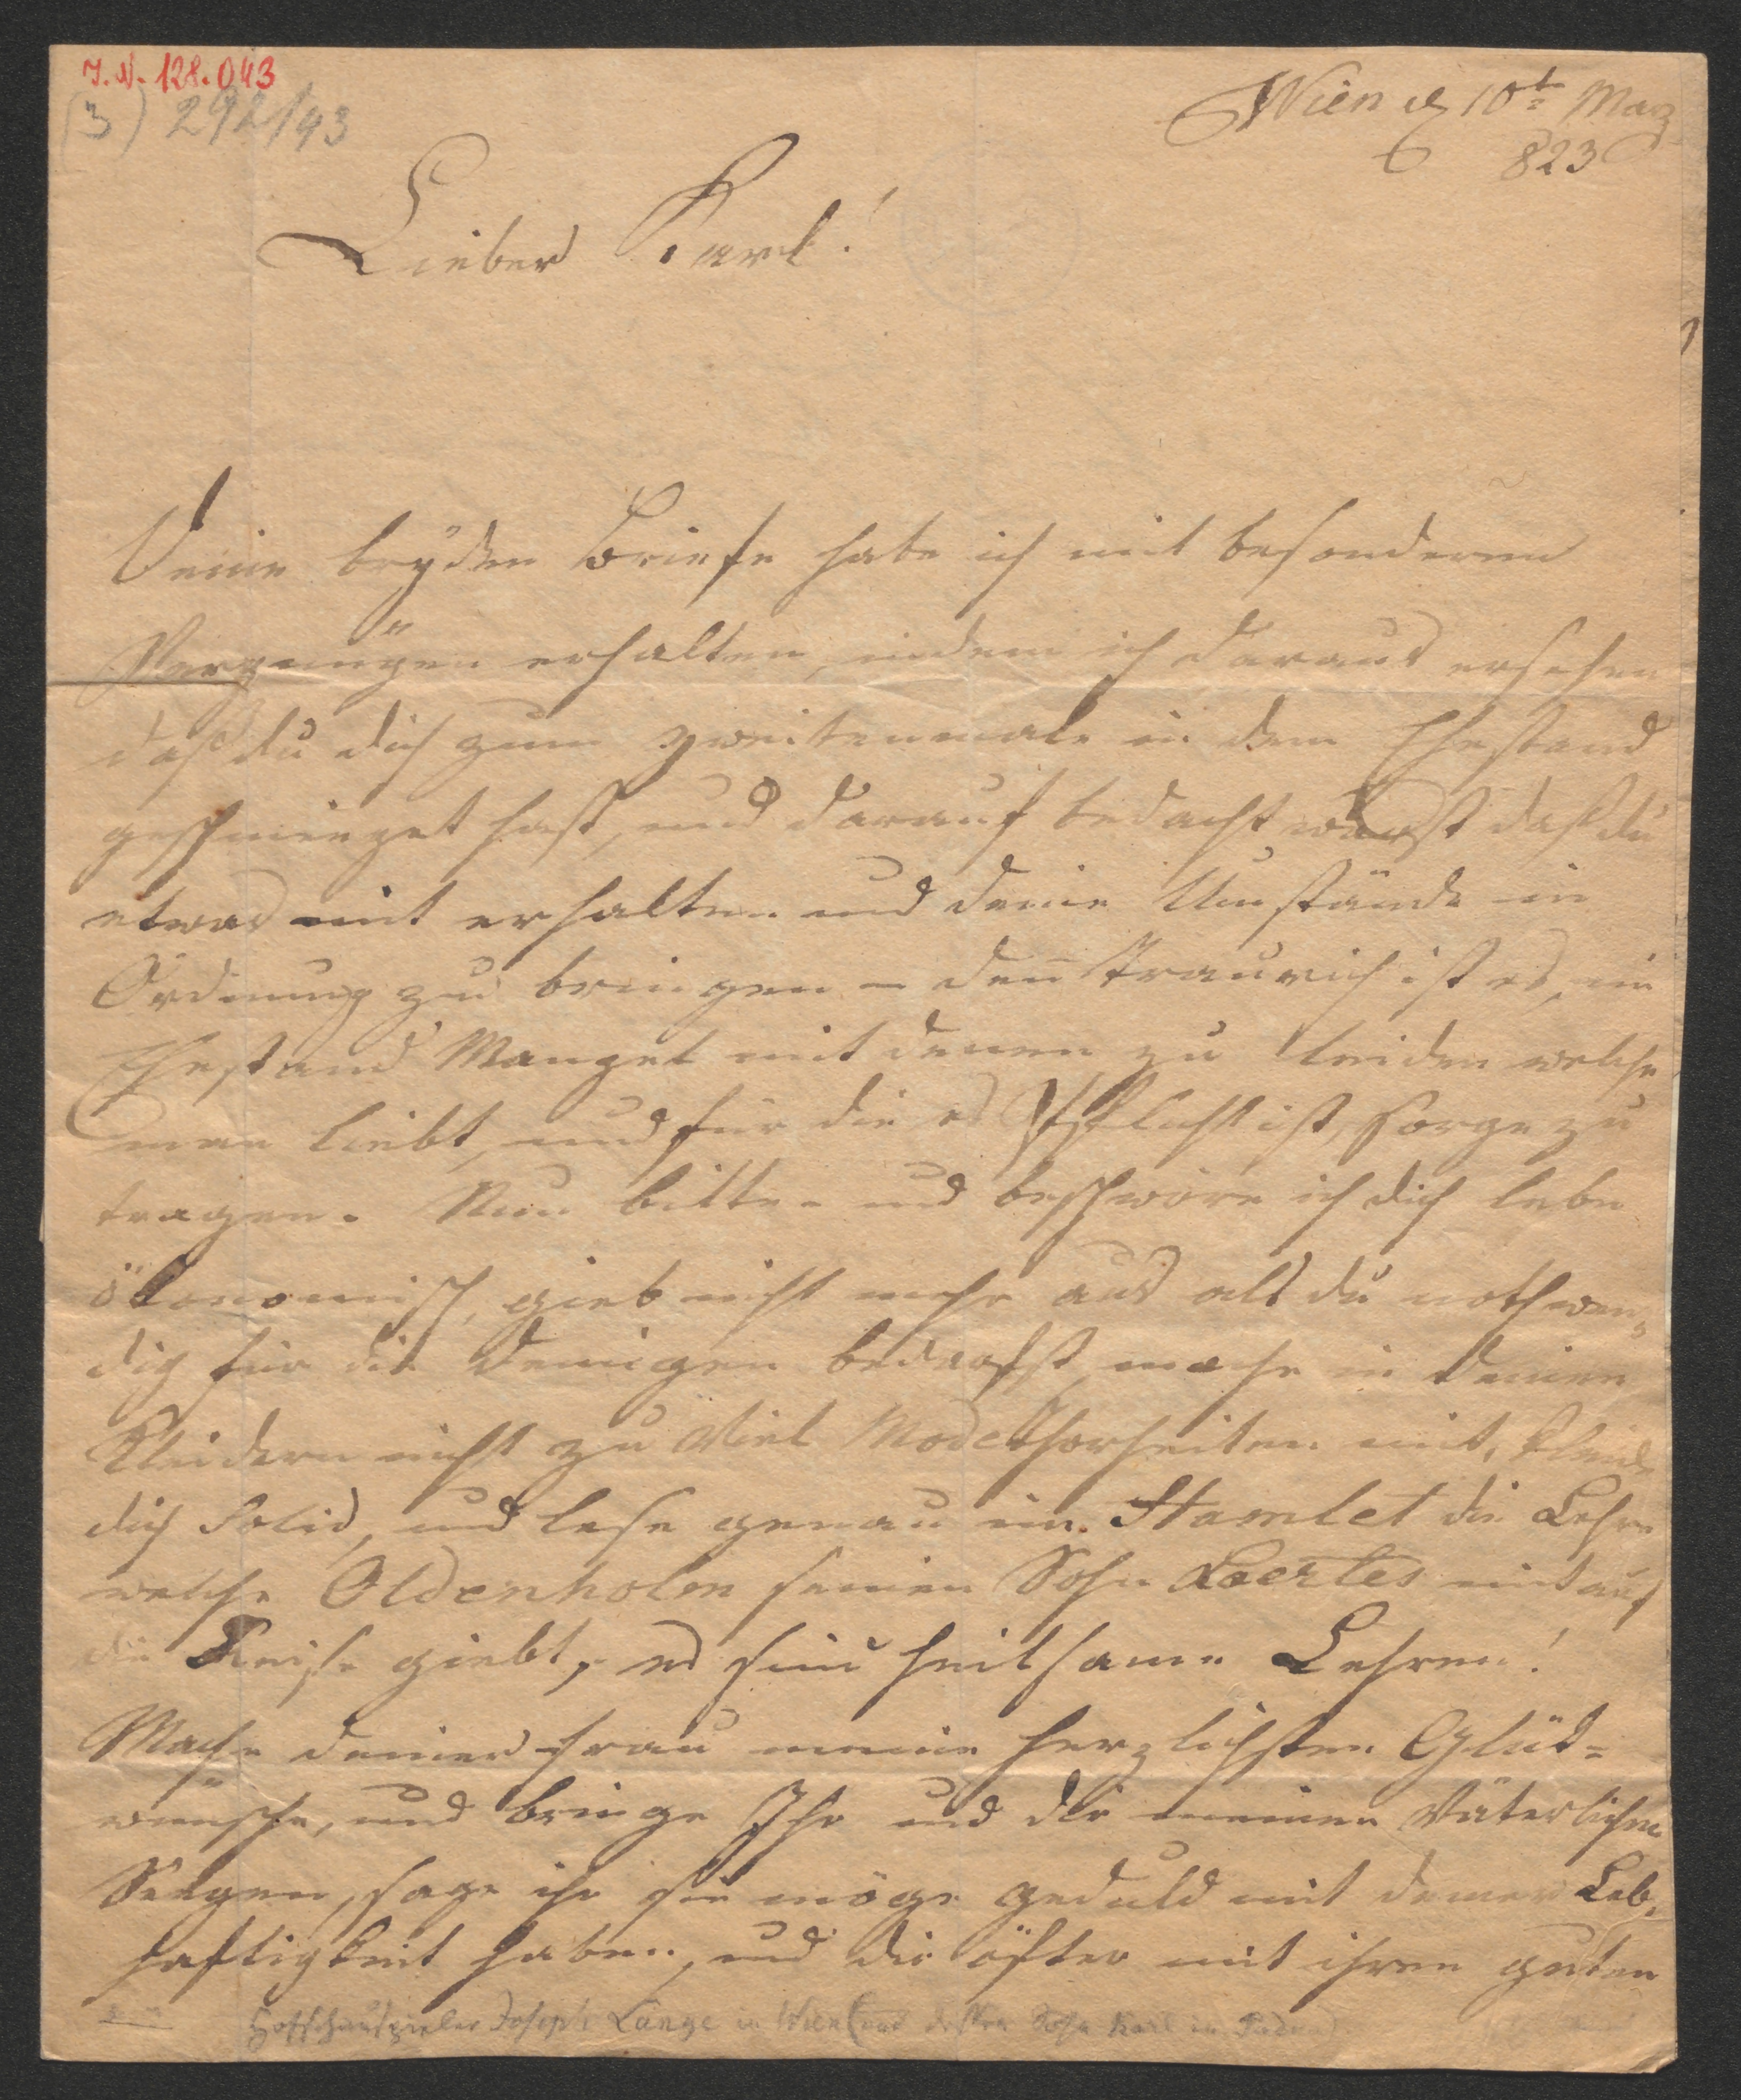 I. N. 128.043
(3) 292/43
Wien d 10t März
823
Lieber Karl!
Deine beyden Briefe habe ich mit besonderem
Vergnügen erhalten, indem ich daraus ersehen
daß du dich zum zweitenmale in dem Ehestand
geschmieget hast, und darauf bedacht warst daß du
etwas mit erhalten und deine Umstände in
Ordnung zu bringen – den Traurich ist es, im
Ehestand Mangel mit denen zu leiden welche
man liebt, und für die es Pflicht ist, Sorge zu
tragen. Nun bitte – und beschwöre ich dich lebe
ökonomisch, gieb nicht mehr aus als du nothwen=
dig für die Deinigen bedarfst, mache in deinen
Kleidern nicht zu viel Mode Thorheiten mit, kleide
dich Solid, und lese genau im Hamlet die Lehre
welche Oldenholm seinen Sohn Laertes mit auf
die Reise giebt, – es sind heilsame Lehren!
Mache deiner Frau meine herzlichsten Glück=
wünsche, und bringe Ihr und dir meinen Väterlichen
Seegen, sage ihr sie möge geduld mit deiner Leb=
haftigkeit haben, und dir öfter mit ihren guten
Hofschauspieler Joseph Lange in Wien (an dessen Sohn Karl in